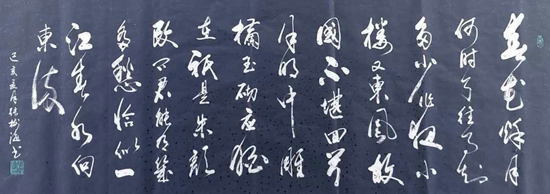 春花秋月
何时了往事知
多少昨夜小
楼又东風故
國不堪回首
月明中雕
欄玉砌应猶
在祇是朱颜
改问君能有幾
多愁恰似一
江春水向
東流
己亥